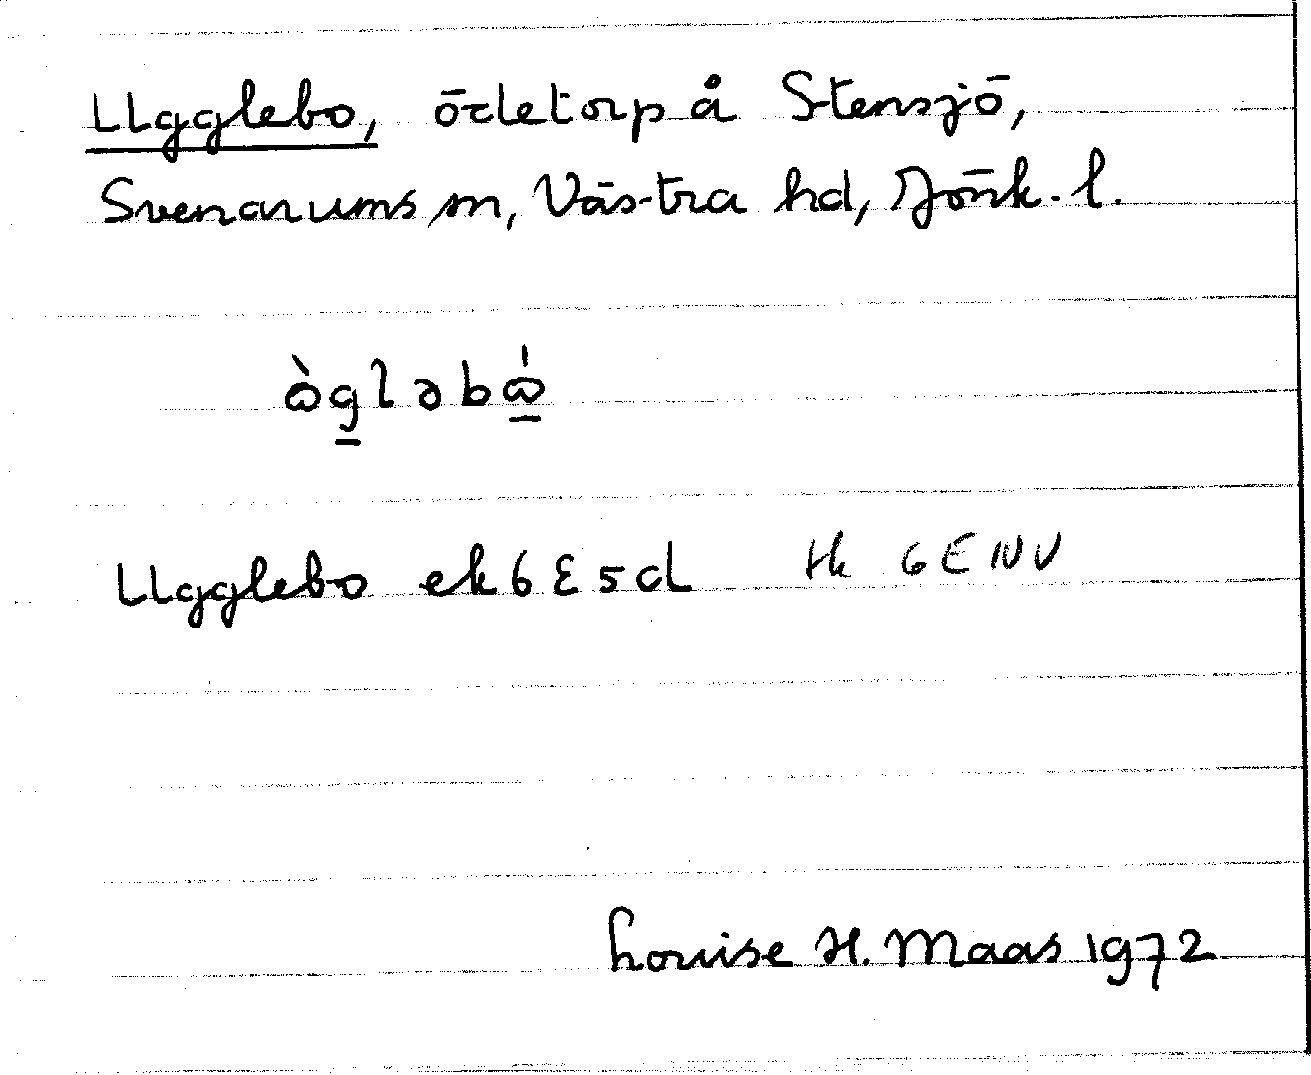 Ugglebo, ödetorp å Stensjö,
Svenarums sn, Västra hd, Jönk. l.
ὼgləbω̍
Ugglebo ek 6 E 5 d tk 6E NV
Louise H. Maas 1972